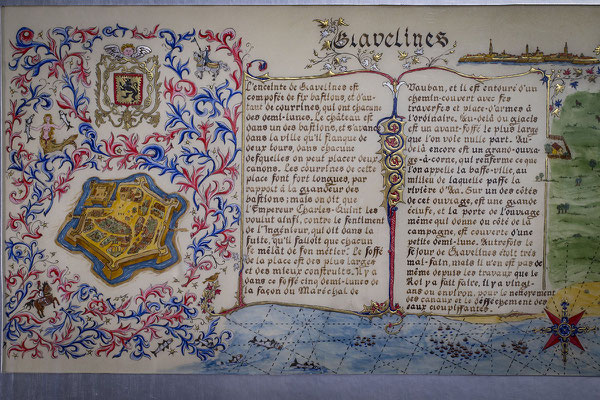 Gravelines
L'enceinte de Gravelines est
composée de six bastions, et d'au-
tant de courtines, qui ont chacune
des demi-lunes. Le château est
dans un des bastions, s'avance
dans la ville qu'il flanque de
deux tours, dans chacune
desquelles on peut placer deux
canons. Les courtines de cette
place sont fort longues, par
rapport à la grandeur des
bastions; mais on dit que
l'Empereur Charles-Quint les
fit ainsi, contre le sentiment
de l'Ingénieur, qui dit dans la
suite, qu'il falloit que chacun
se mêlât de son métier. Le fossé
de la place est des plus larges
et des mieux construits. Il y a
dans ce fossé cinq demi-lunes de
la façon du Maréchal de
Vauban, et il est entouré d'un
chemin-couvert avec ses
traverses et place-d'armes à
l'ordinaire. Au-delà du glacis
est un avant-fossé le plus large
que l'on voie nulle part. Au-
delà encore est un grand ouvra-
ge-à-corne, qui renferme ce que
l'on appelle la basse-ville, au
milieu de laquelle passe la
rivière d'Aa. Sur un des côtés
de cet ouvrage, est une grande
écluse, et la porte de l'ouvrage
même qui donne du côté de la
campagne, est couverte d'une
petite demi-lune. Autrefois le
séjour de Gravelines étoit très
mal-sain, mais il n'en est pas de
même depuis les travaux que le
Roi y a fait faire, il y a vingt-
ans ou environ, pour le nettoyement
des canaux et le dessèchement des
eaux croupissantes.